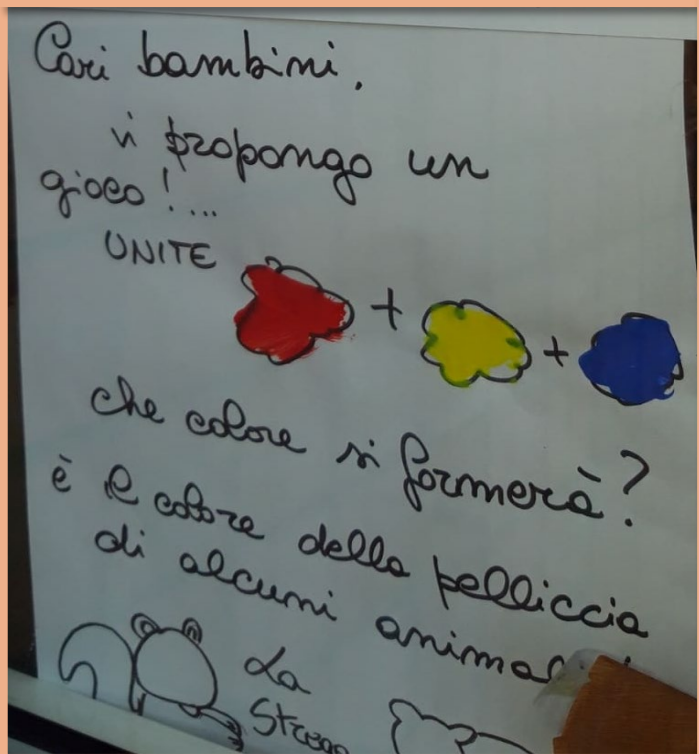 Cari bambini,
vi propongo un
gioco!...
UNITE + +
che colore si formerà?
è il colore della pelliccia
di alcuni
La